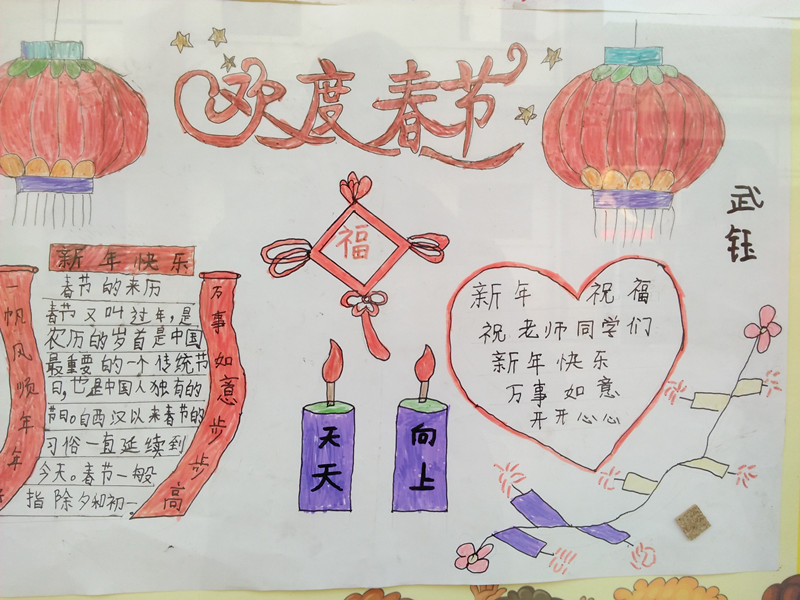 欢度春节
武钰
新年快乐
一帆风顺年年
春节的来历
春节又叫过年,是
农历的岁首是中国
最重要的一个传统节
日,也是中国人独有的
节日。自西汉以来春节的
习俗一直延续到
今天。春节一般
指除夕和初一。
万事如意步步高
福
天天
向上
新年 祝福
祝老师同学们
新年快乐
万事如意
开开心心